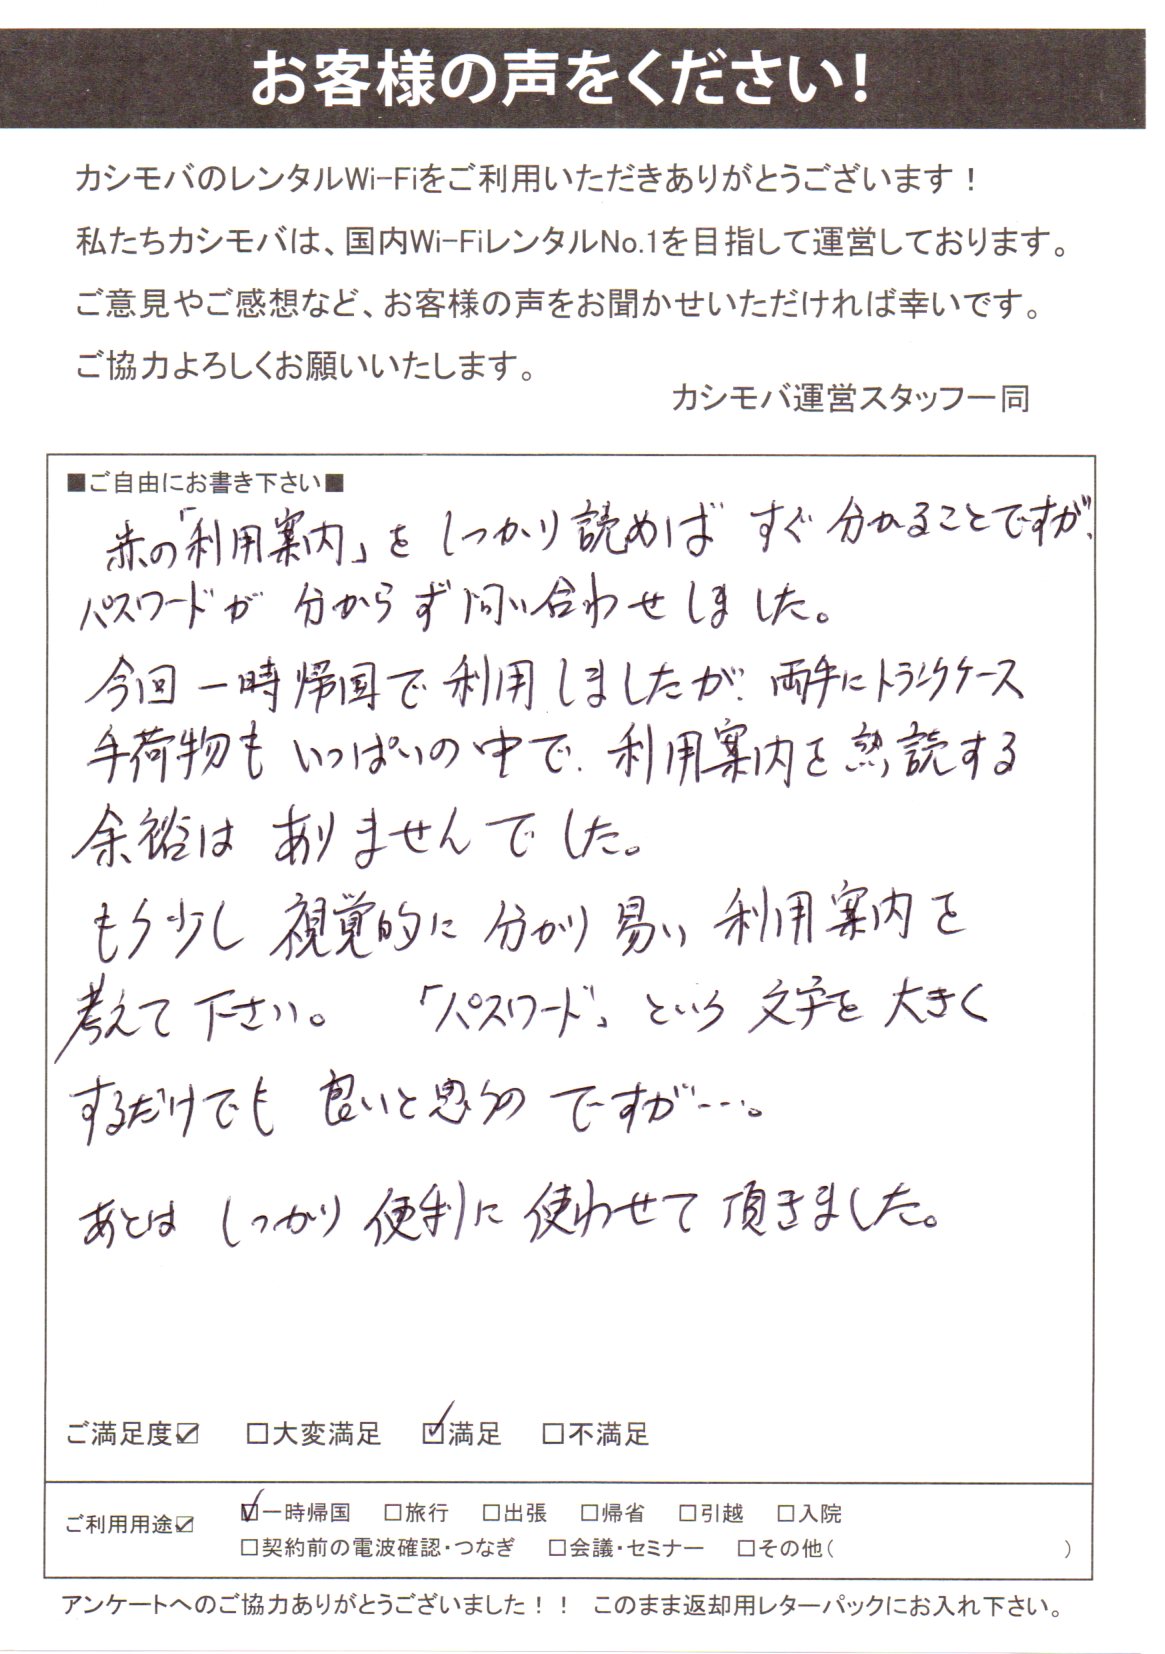 お客様の声をください！
カシモバのレンタルWi-Fiをご利用いただきありがとうございます！
私たちカシモバは、国内Wi-FiレンタルNo.1を目指して運営しております。
ご意見やご感想など、お客様の声をお聞かせいただければ幸いです。
ご協力よろしくお願いいたします。
カシモバ運営スタッフ一同
■ご自由にお書き下さい■
赤の「利用案内」を しっかり読めば すぐ 分かることですが、
パスワードが 分からず 問い合わせしました。
今回 一時帰国で 利用しましたが、両手にトランクケース
手荷物も いっぱいの 中で、利用案内を 熟読する
余裕は ありませんでした。
もう少し 視覚的に 分かり易い 利用案内を
考えて下さい。 「パスワード」 という 文字を 大きく
するだけでも 良いと思うの ですが…。
あとは しっかり 便利に 使わせて 頂きました。
ご満足度☑ □大変満足 ☑満足 □不満足
ご利用用途☑ ☑一時帰国 □旅行 □出張 □帰省 □引越 □入院
□契約前の電波確認・つなぎ □会議・セミナー □その他( )
アンケートへのご協力ありがとうございました！！ このまま返却用レターパックにお入れ下さい。